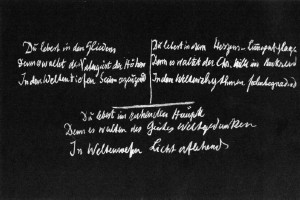 Du lebest in den Gliedern
Denn es waltet der Vatergeist der Höhen
In den Weltentiefen Sein erzeugend
Du lebest in dem Herzens-Lungenschlage
Denn es waltet der Chr. Wille im Umkreis
In den Weltenrhythmen Seelen begnadend
Du lebest im ruhenden Haupte
Denn es walten des Geistes Weltgedanken
In Weltenwesen Licht erflehend